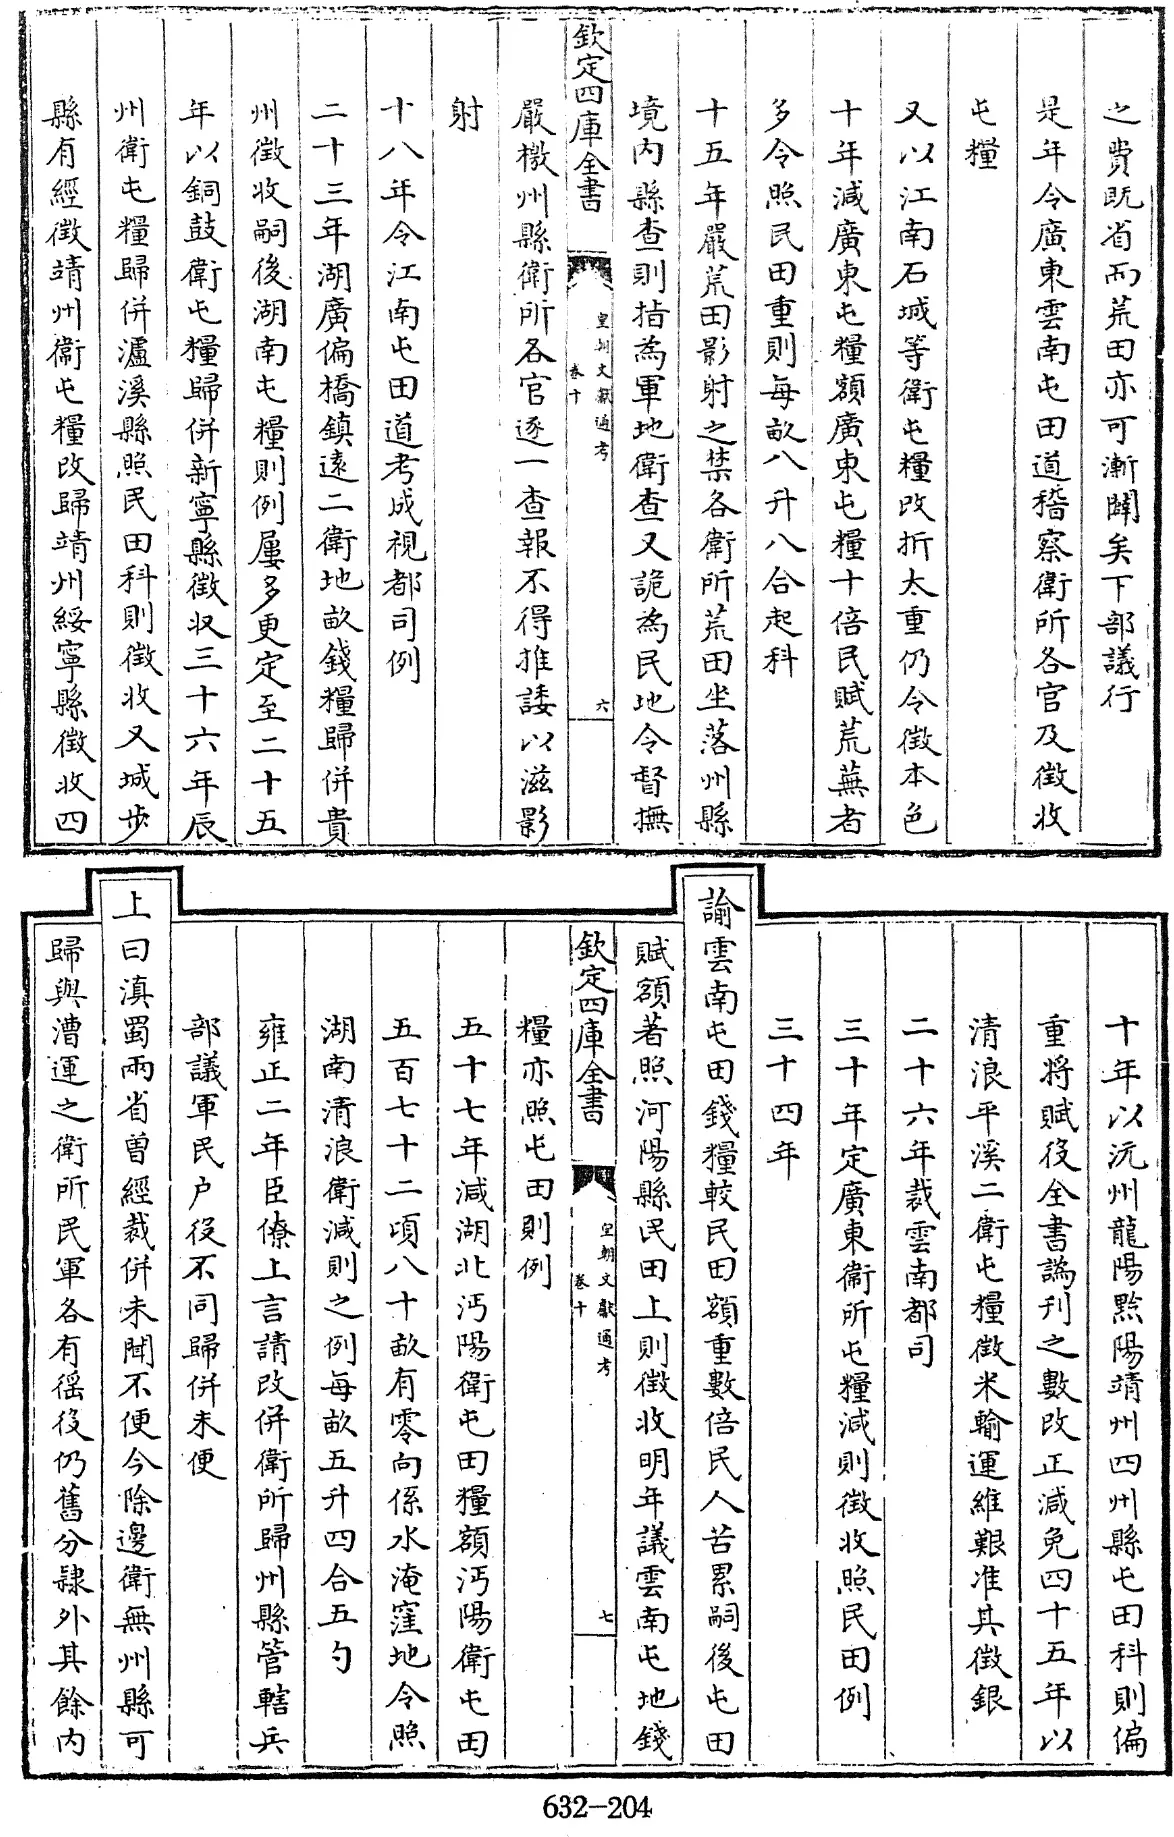 之費既省而荒田亦可漸闢矣下部議行
是年令廣東雲南屯田道稽察衛所各官及徵收
屯糧
又以江南石城等衛屯糧改折太重仍令徵本色
十年減廣東屯糧額廣東屯糧十倍民賦荒蕪者
多令照民田重則每畝八升八合起科
十五年嚴荒田影射之禁各衛所荒田坐落州縣
境內縣查則指為軍地衛查又詭為民地令督撫
欽定四庫全書
皇朝文獻通考
卷十
六
嚴檄州縣衛所各官逐一查報不得推諉以滋影
射
十八年令江南屯田道考成視都司例
二十三年湖廣偏橋鎮遠二衛地畝錢糧歸併貴
州徵收嗣後湖南屯糧則例屢多更定至二十五
年以銅鼓衛屯糧歸併新寧縣徵收三十六年辰
州衛屯糧歸併瀘溪縣照民田科則徵收又城步
縣有經徵靖州衛屯糧改歸靖州綏寧縣徵收四
十年以沅州龍陽黔陽靖州四州縣屯田科則偏
重將賦役全書譌刊之數改正減免四十五年以
清浪平溪二衛屯糧徵米輸運維艱准其徵銀
二十六年裁雲南都司
三十年定廣東衛所屯糧減則徵收照民田例
三十四年
諭雲南屯田錢糧較民田額重數倍民人苦累嗣後屯田
賦額著照河陽縣民田上則徵收明年議雲南屯地錢
欽定四庫全書
皇朝文獻通考
卷十
七
糧亦照屯田則例
五十七年減湖北沔陽衛屯田糧額沔陽衛屯田
五百七十二頃八十畝有零向係水淹窪地令照
湖南清浪衛減則之例每畝五升四合五勺
雍正二年臣僚上言請改併衛所歸州縣管轄兵
部議軍民户役不同歸併未便
上曰滇蜀兩省曾經裁併未聞不便今除邊衛無州縣可
歸與漕運之衛所民軍各有徭役仍舊分隸外其餘內
632-204